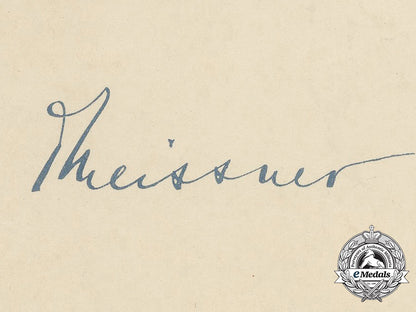 Meissner
eMedals